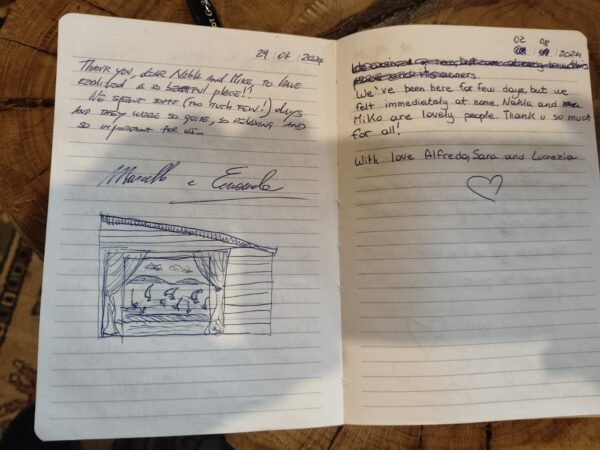 29 | 07 | 2024
Thank you, dear Nahla and Mike, to have
realized a so beautiful place!!
We spent some (too much few!) days
and they were so quite, so relaxing and
so important for us...
Marcello e Emanuela
02 08
2024
owners.
We've been here for few days, but we
felt immediately at home. Nahla and
Miko are lovely people. Thank u so much
for all!
With love Alfredo, Sara and Lucrezia